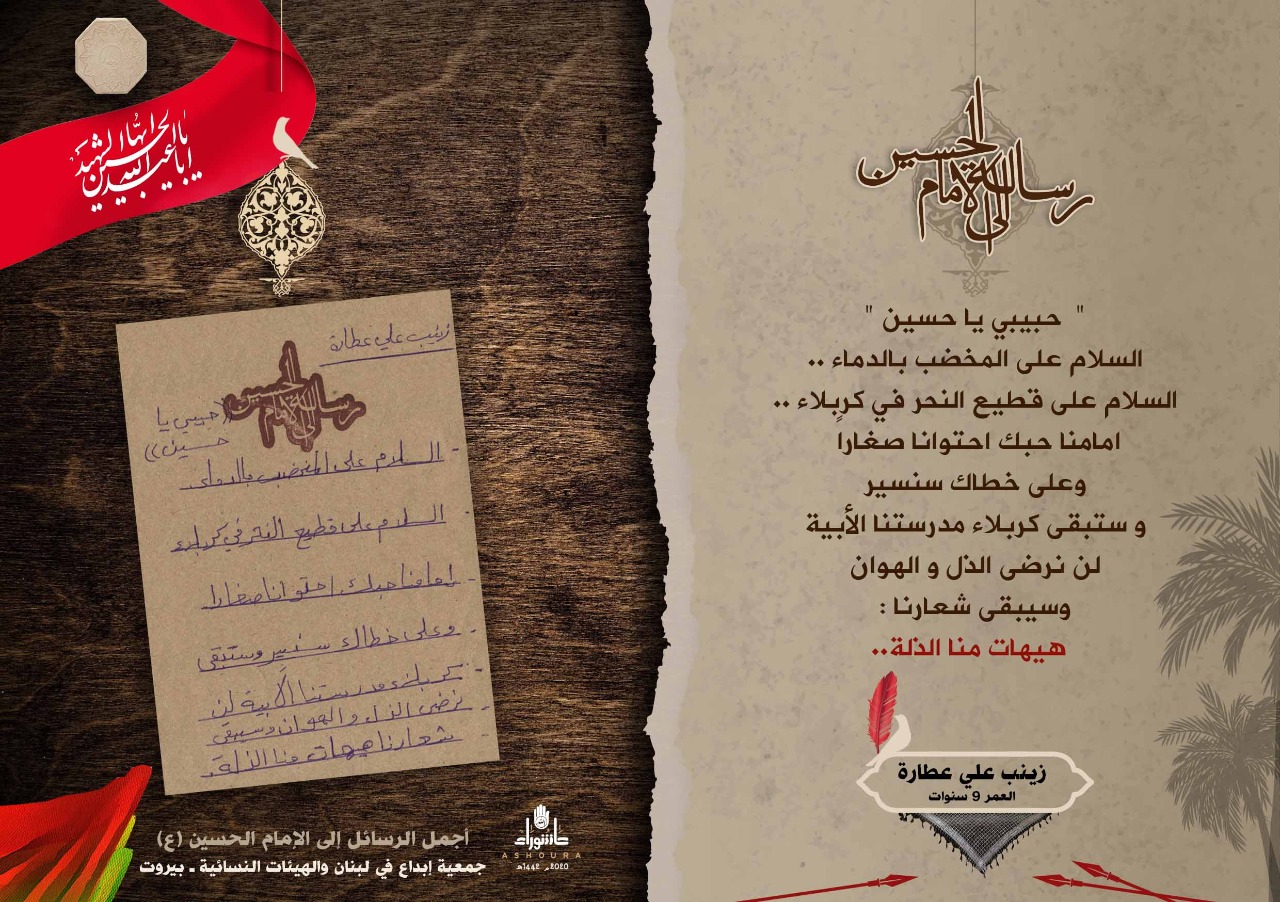 يا أيها الحسين الشهيد
يا أبا عبد الله
زينب علي عطارة
رسالة إلى الامام الحسين
((حبيبي يا
حسين))
- السلام على المخضب بالدماء
- السلام على قطيع النحر في كربلاء
- امامنا حبك احتوانا صغارا
- وعلى خطاك سنسير وستبقى
- كربلاء مدرستنا الأبية لن
- نرضى الذل والهوان وسيبقى
- شعارنا هيهات منا الذلة.
أجمل الرسائل إلى الامام الحسين (ع)
جمعية إبداع في لبنان والهيئات النسائية - بيروت
عاشوراء
ASHOURA
2020م 1442هـ
رسالة إلى الامام الحسين
" حبيبي يا حسين "
السلام على المخضب بالدماء ..
السلام على قطيع النحر في كربلاء ..
امامنا حبك احتوانا صغارا
وعلى خطاك سنسير
و ستبقى كربلاء مدرستنا الأبية
لن نرضى الذل و الهوان
وسيبقى شعارنا :
هيهات منا الذلة..
زينب علي عطارة
العمر 9 سنوات